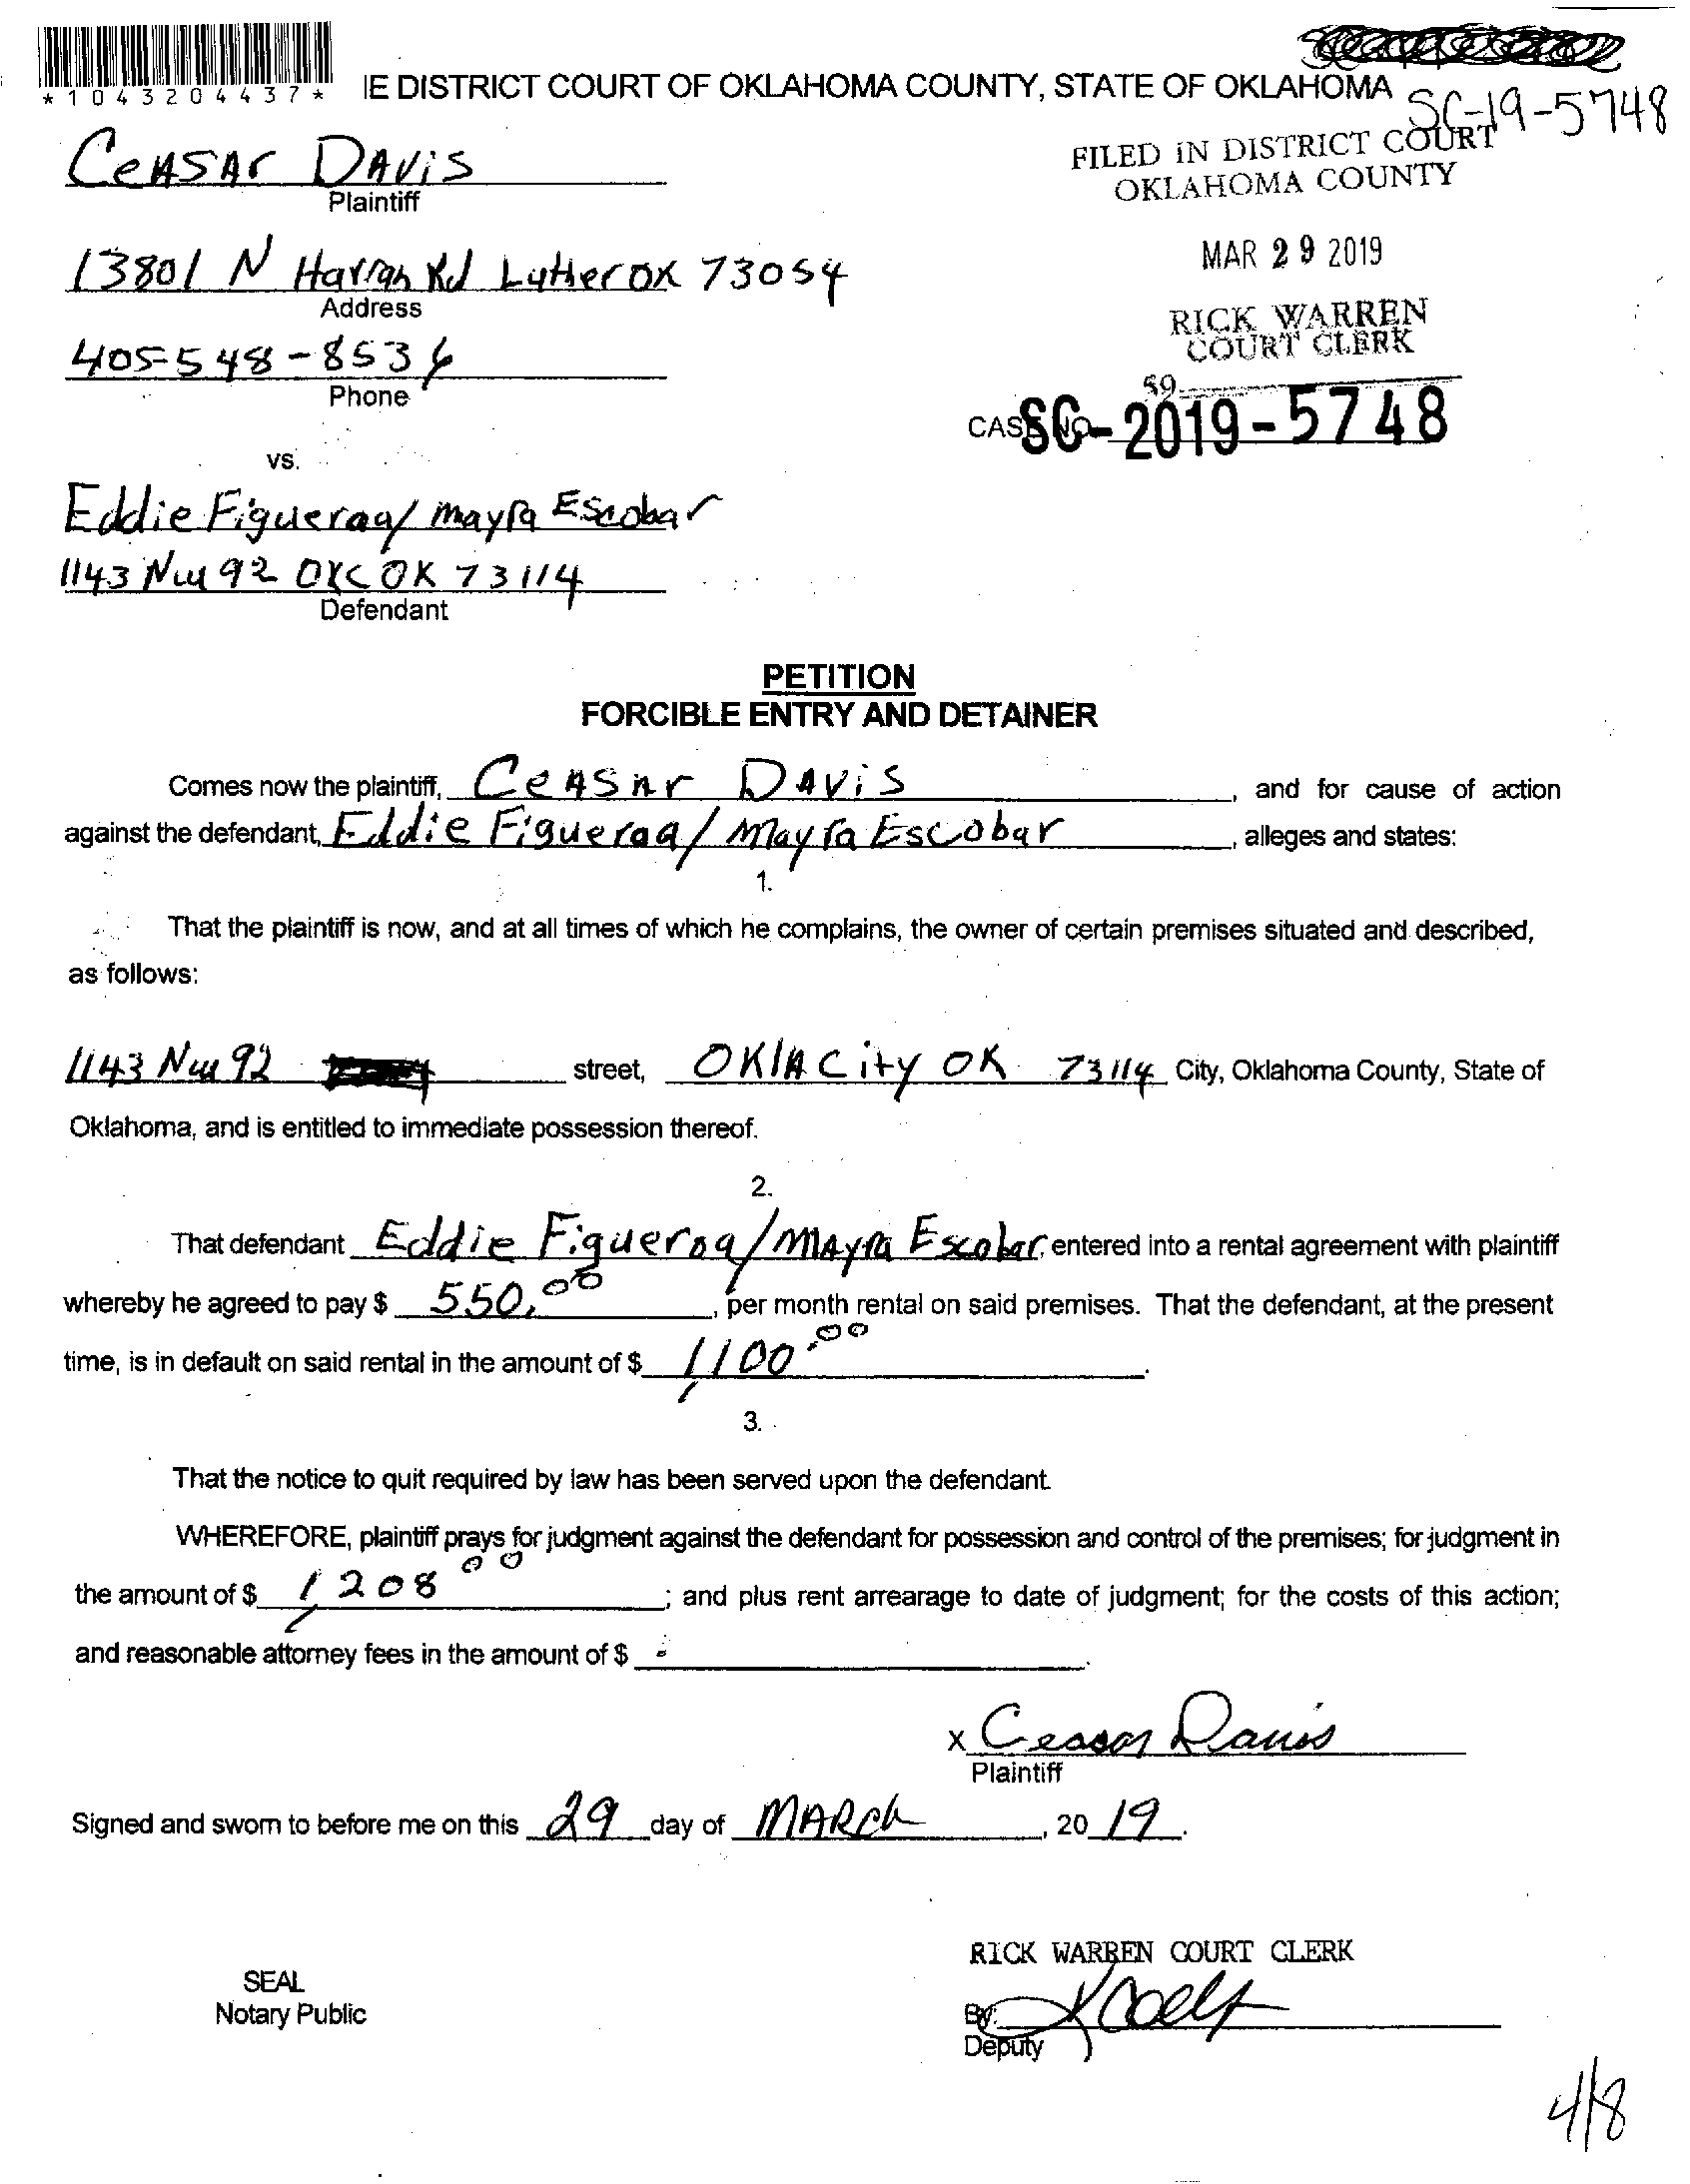 *1043204437*
IE DISTRICT COURT OF OKLAHOMA COUNTY, STATE OF OKLAHOMA
SC-19-5748
CeASAr DAViS
Plaintiff
FILED IN DISTRICT COURT
OKLAHOMA COUNTY
13801 N Harrah Rd Luther OK 73054
Address
MAR 29 2019
405-548-8536
Phone
RICK WARREN
COURT CLERK
59
CASE NO.
SC-2019-5748
vs.
Eddie Figueroa/ mayra Escobar
1143 NW 92 OKC OK 73114
Defendant
PETITION
FORCIBLE ENTRY AND DETAINER
Comes now the plaintiff, CeASAr DAViS, and for cause of action
against the defendant, Eddie Figueroa/ mayra Escobar, alleges and states:
1.
That the plaintiff is now, and at all times of which he complains, the owner of certain premises situated and described,
as follows:
1143 NW 92 street, OKlA City OK 73114 City, Oklahoma County, State of
Oklahoma, and is entitled to immediate possession thereof.
2.
That defendant Eddie Figueroa/mAyra Escobar, entered into a rental agreement with plaintiff
whereby he agreed to pay $ 550.00, per month rental on said premises. That the defendant, at the present
time, is in default on said rental in the amount of $ 1,100.00.
3.
That the notice to quit required by law has been served upon the defendant.
WHEREFORE, plaintiff prays for judgment against the defendant for possession and control of the premises; for judgment in
the amount of $ 1,208 00; and plus rent arrearage to date of judgment; for the costs of this action;
and reasonable attorney fees in the amount of $ -.
x Ceasar Davis
Plaintiff
Signed and sworn to before me on this 29 day of MARch, 20 19.
RICK WARREN COURT CLERK
SEAL
Notary Public
By:
Deputy
4/8